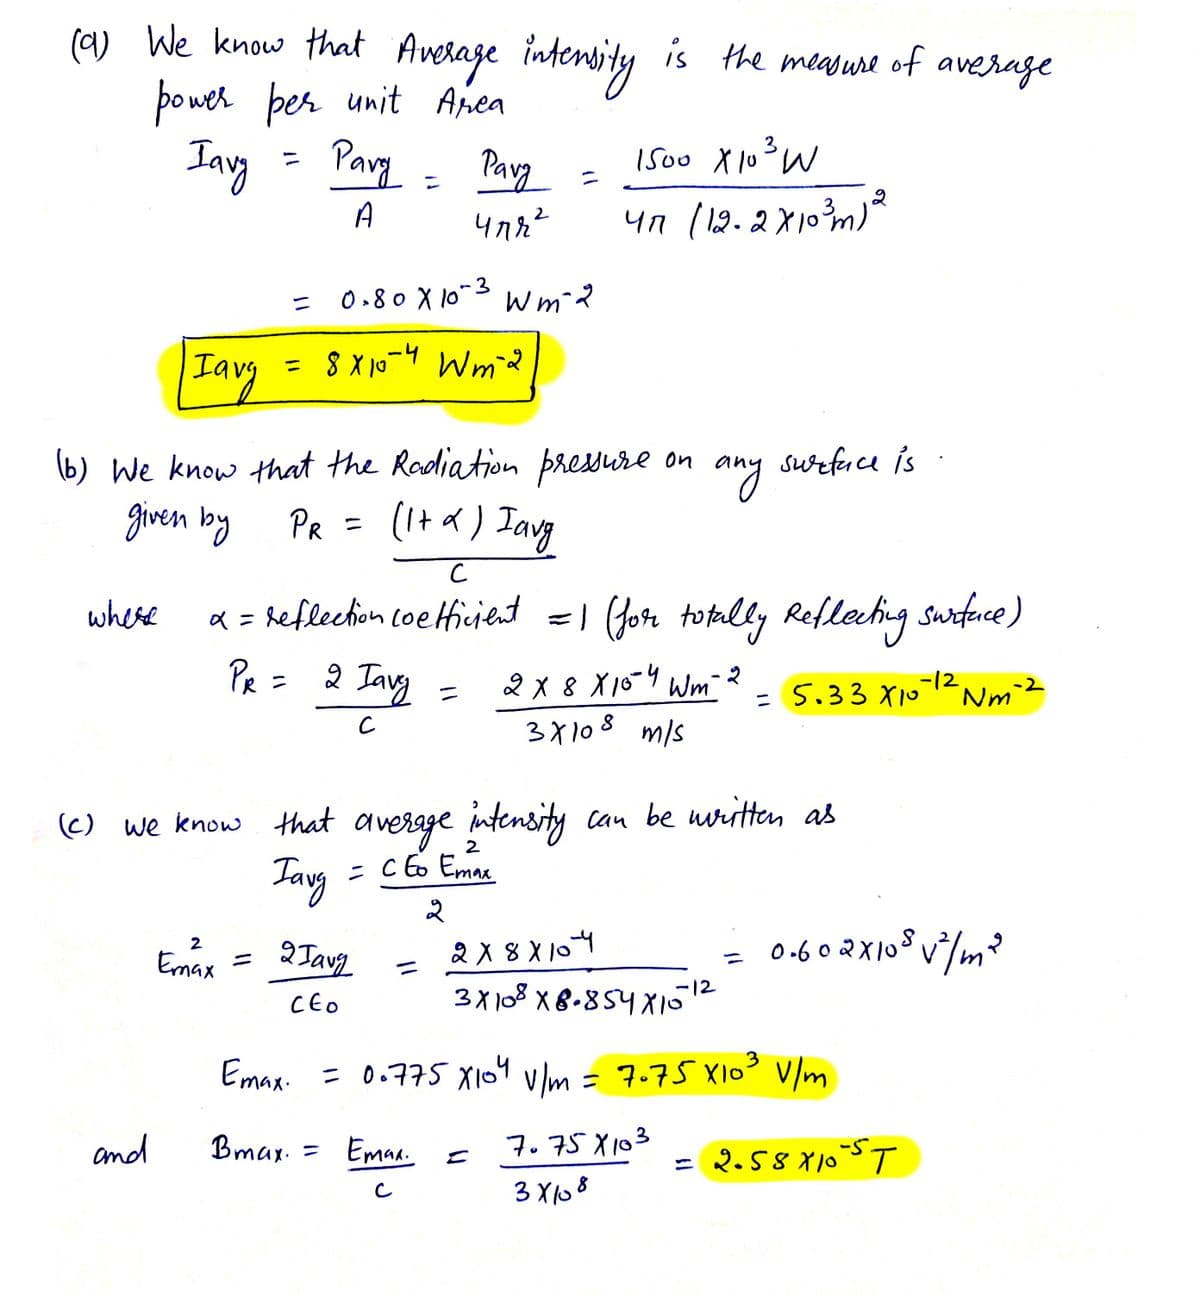 (a) We know that Average intensity is the measure of average
power per unit Area
Iavg = Pavg / A = Pavg / 4πr² = 1500 X10³W / 4π (12.2 X10³m)²
= 0.80 X 10⁻³ Wm⁻²
Iavg = 8 X10⁻⁴ Wm⁻²
(b) We know that the Radiation pressure on any surface is
given by PR = (1+α) Iavg / C
where α = reflection coefficient = 1 (for totally Reflecting surface)
PR = 2 Iavg / C = 2 X 8 X10⁻⁴ Wm⁻² / 3X10⁸ m/s = 5.33 X10⁻¹² Nm⁻²
(c) we know that average intensity can be written as
Iavg = C ϵ₀ E²max / 2
E²max = 2Iavg / Cϵ₀ = 2 X 8 X10⁻⁴ / 3X10⁸ X 8.854 X10⁻¹² = 0.602X10⁸ V²/m²
Emax. = 0.775 X10⁴ V/m = 7.75 X10³ V/m
and Bmax. = Emax. / C = 7.75 X10³ / 3 X10⁸ = 2.58 X10⁻⁵ T